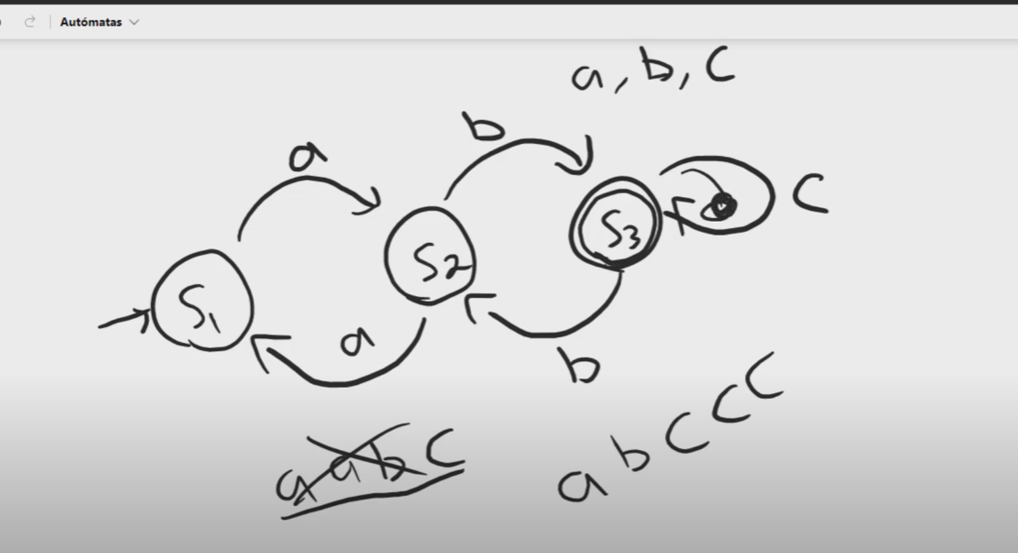 Autómatas
a, b, c
b
a
S1
S2
S3
c
a
b
aabc
abccc